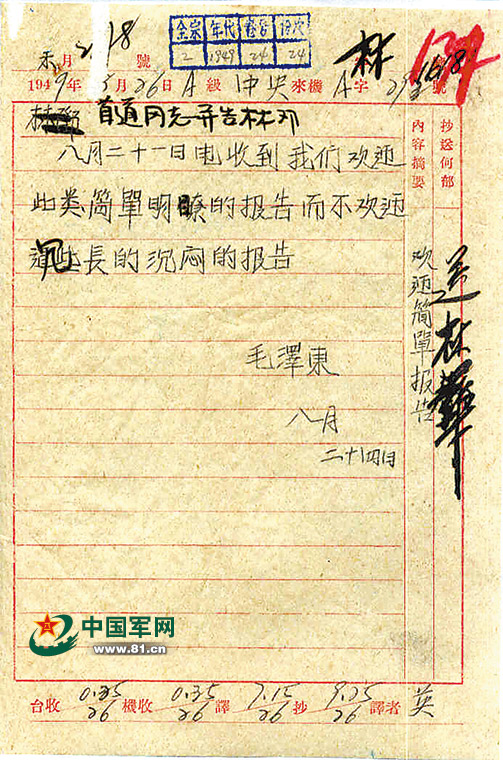 全宗 年代 卷号 件次
2 1949 24 24
月 號
林
1949年8月26日A級中央來機A字 號
首道同志并告林邓
八月二十一日电收到我们欢迎
此类简單明瞭的报告而不欢迎
長的沉闷的报告
毛澤東
八月
二十四日
抄送何部
内容摘要
欢迎简單报告
中国军网
www.81.cn
台收 0.35/26 機收 0.35/26 譯 7.15/26 抄 9.25/26 譯者 英